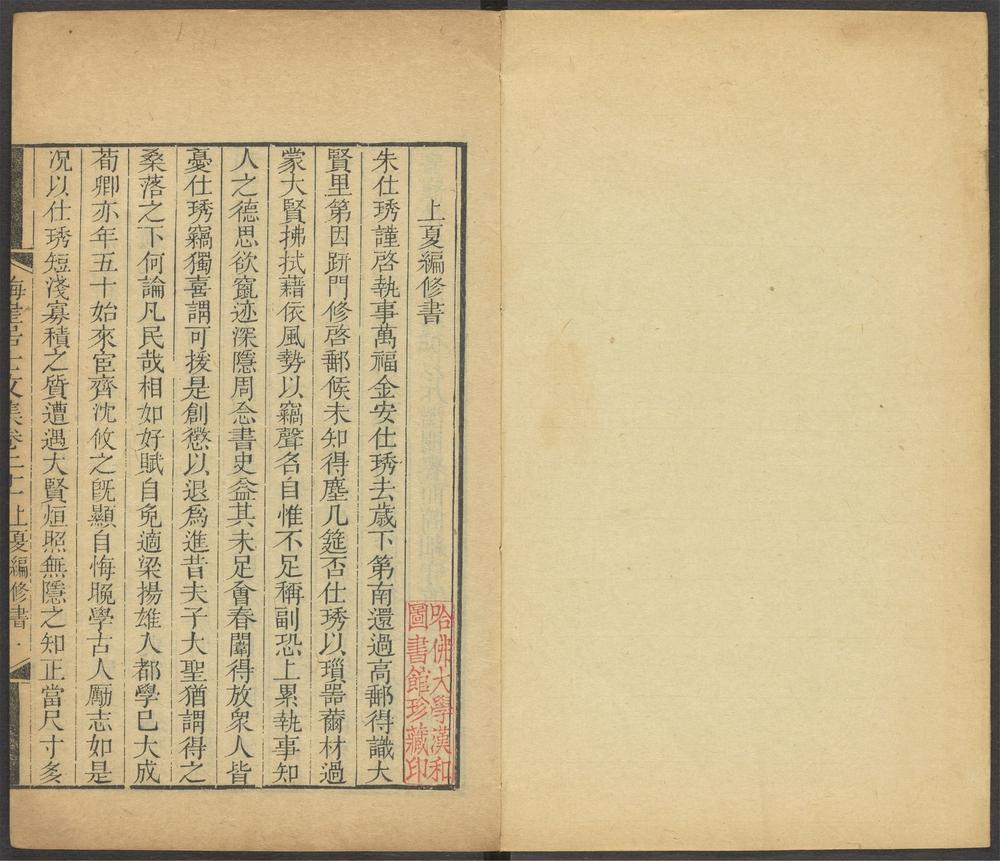 上夏編修書
朱仕琇謹啓執事萬福金安仕琇去歲下第南還過高郵得識大
賢里第因跰門修啓郵候未知得塵几筵否仕琇以瑣噐薾材過
蒙大賢拂拭藉依風勢以竊聲名自惟不足稱副恐上累執事知
人之德思欲竄迹深隱周悆書史益其未足會春闈得放衆人皆
憂仕琇竊獨喜謂可援是創懲以退爲進昔夫子大聖猶謂得之
桑落之下何論凡民哉相如好賦自免適梁揚雄入都學已大成
荀卿亦年五十始來宦齊沈攸之旣顯自悔晚學古人厲志如是
况以仕琇短淺寡積之質遭遇大賢烜照無隱之知正當尺寸亥
梅崖居士文集卷二十上夏編修書 一
哈佛大學漢和
圖書館珍藏印